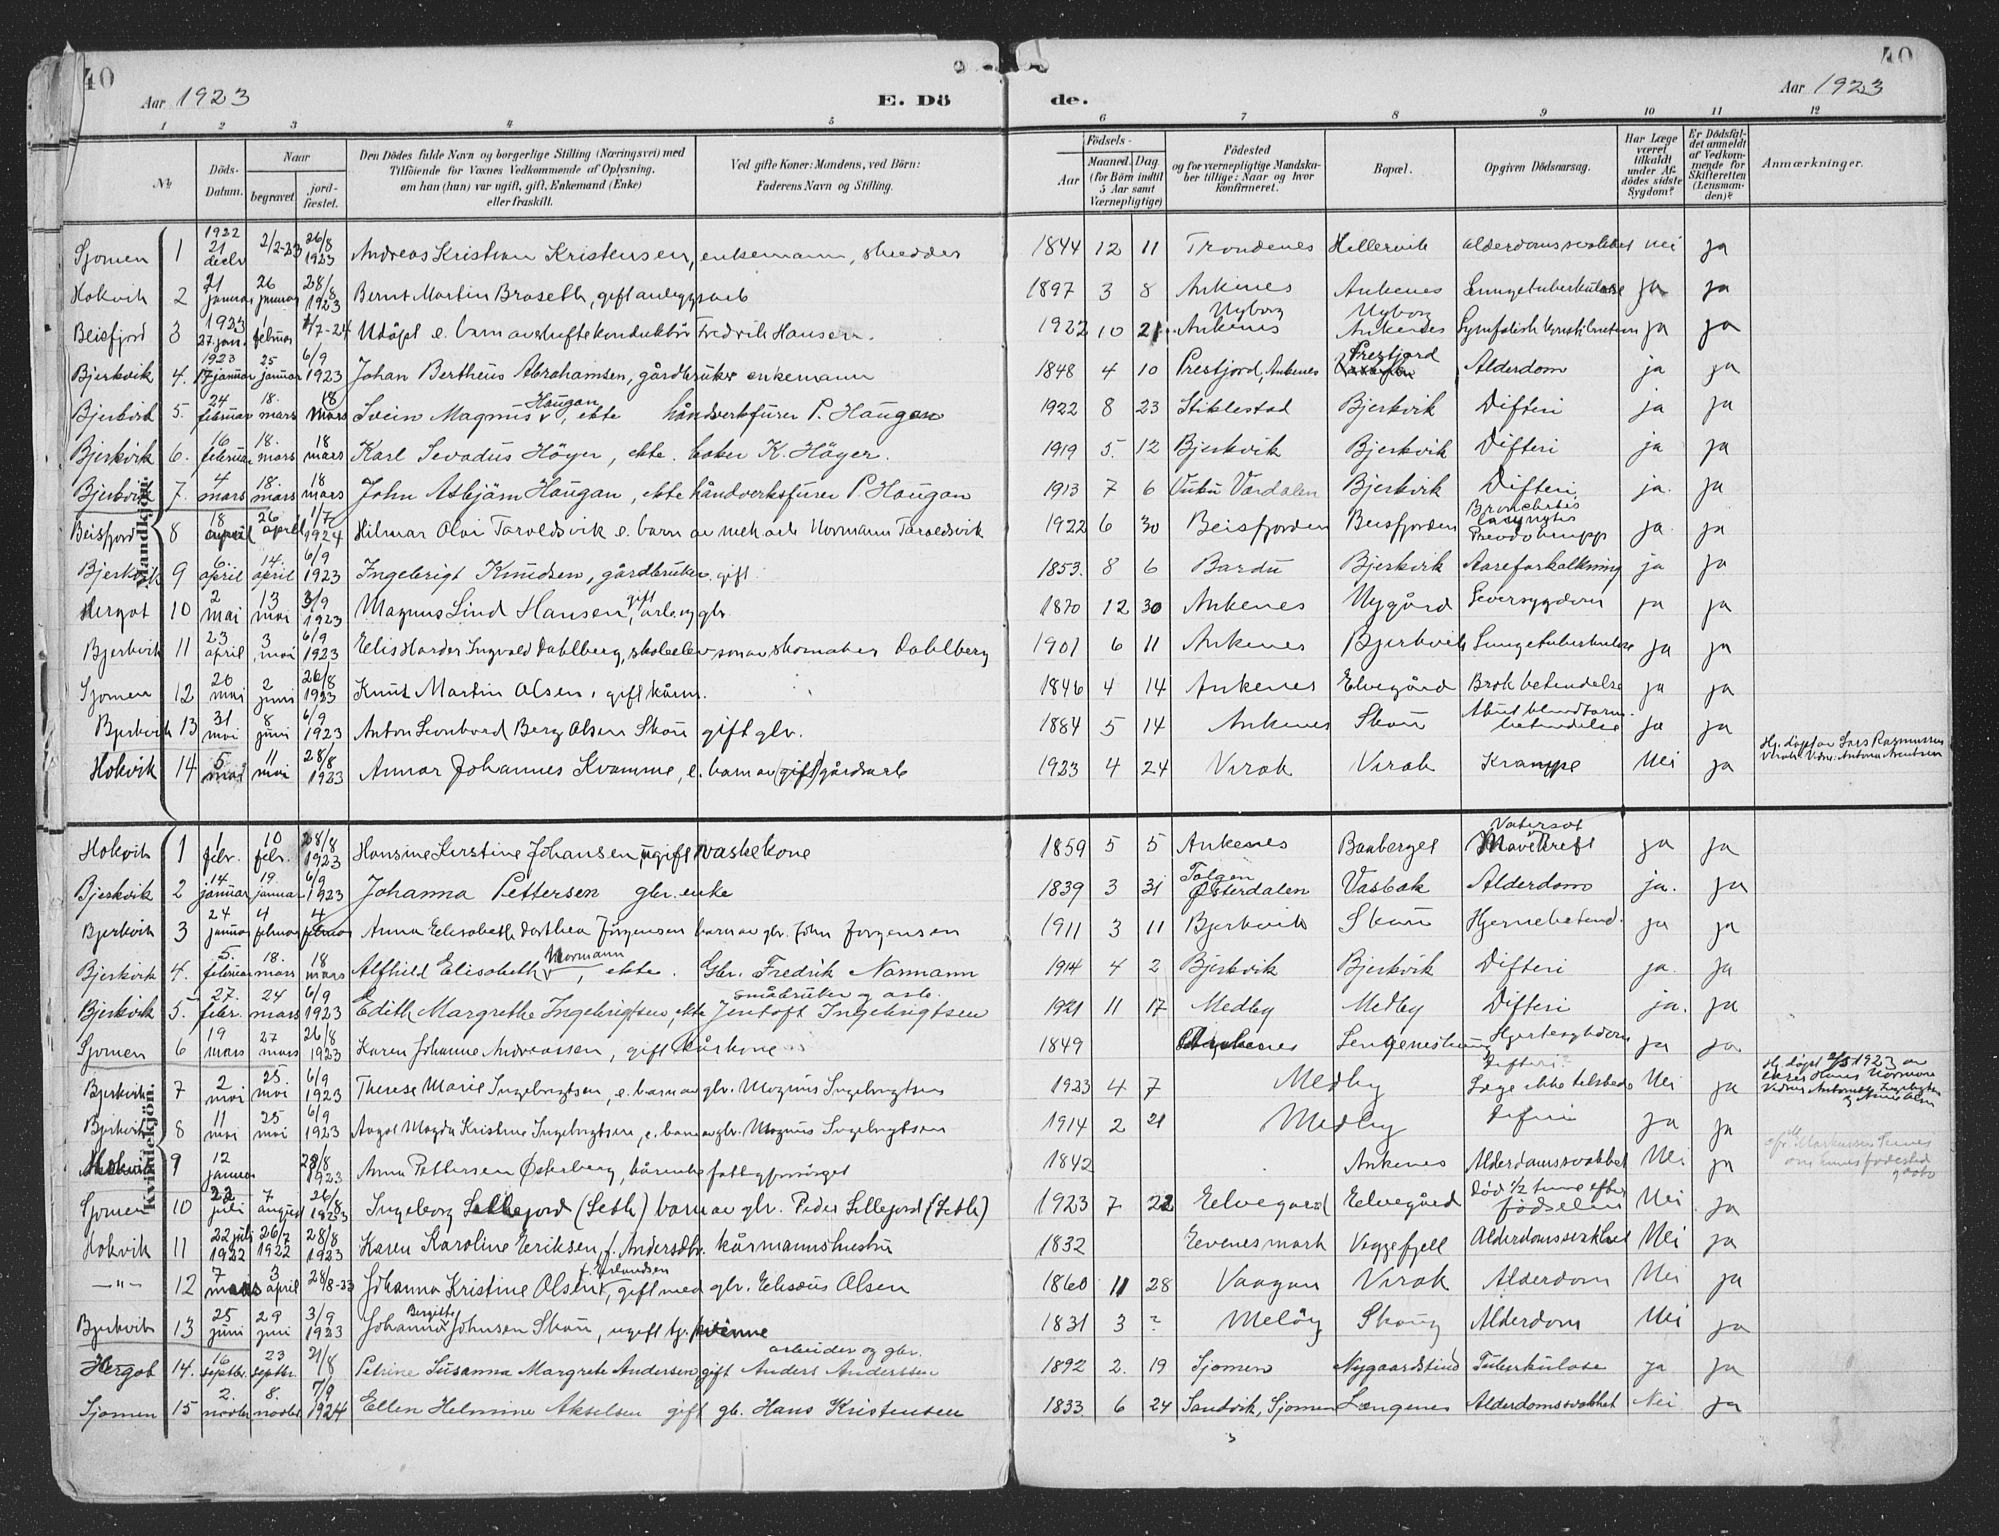 40
40
Aar 1923
E. Dö
de.
Aar 1923
1 2 3 4 5 6 7 8 9 10 11 12
№
Döds-Datum.
Naar
begravet
jord-fæstet.
Den Dödes fulde Navn og borgerlige Stilling (Næringsvei) med Tilföiende for Voxnes Vedkommende af Oplysning, om han (hun) var ugift, gift, Enkemand (Enke) eller fraskilt.
Ved gifte Koner: Mandens, ved Börn: Faderens Navn og Stilling.
Födsels-
Aar
Maaned. Dag. (for Börn indtil 5 Aar samt Værnepligtige)
Födested og for værnepligtige Mandskaber tillige: Naar og hvor konfirmeret.
Bopæl.
Opgiven Dödsaarsag.
Har Læge været tilkaldt under Afdödes sidste Sygdom?
Er Dödsfaldet anmeldt af Vedkommende for Skifteretten (Lensmanden)?
Anmærkninger.
Mandkjön.
Sjomen 1 1922 21 decbr 2/2-23 26/8 1923 Andreas Kristian Kristensen, enkemann, skredder 1844 12 11 Trondenes Hellervik alderdomssvakhet Nei ja
Hokvik 2 21 januar 26 januar 28/8 1923 Bernt Martin Braseth, gift anleggsarb 1897 3 8 Ankenes Ankenes Lungetuberkulose ja ja
Beisfjord 3 1923 27 jan. 1 februar 4/7-24 Udöpt e. barn av skiftekonduktör Fredrik Hansen. 1922 10 21 Nyborg Ankenes Nyborg Ankenes Lymfatisk konstitution ja ja
Bjerkvik 4. 1923 17 januar 25 januar 6/9 1923 Johan Bertheus Abrahamsen, gårdbruker enkemann 1848 4 10 Prestjord, Ankenes Prestjord Alderdom ja ja
Bjerkvik 5. 24 februar 18. mars 18 mars Svein Magnus Haugan, ekte håndverksfurer P. Haugan 1922 8 23 Stiklestad Bjerkvik Difteri ja ja
Bjerkvik 6. 16 februar 18. mars 18 mars Karl Sevadus Höyer, ekte. baker K. Höyer. 1919 5. 12 Bjerkvik Bjerkvik Difteri ja ja
Bjerkvik 7. 4 mars 18. mars 18 mars John Asbjörn Haugan, ekte håndverksfurer P. Haugan 1913 7 6 Vuku Værdalen Bjerkvik Difteri, ja. ja
Beisfjord 8 18 april 26 april 1/7 1924 Hilmar Olai Taraldsvik e. barn av mek arb Normann Taraldsvik 1922 6 30 Beisfjorden Beisfjorden Bronchitis Laryngitis Pseudokrupp ja. ja
Bjerkvik 9 6 april 14 april 6/9 1923 Ingebrigt Knudsen, gårdbruker. gift. 1853. 8 6 Bardu Bjerkvik Aareforkalkning ja ja
Hergot 10 2 mai 13 mai 3/9 1923 Magnus Lind Hansen, gift arb. og gbr. 1870 12 30 Ankenes Nygård Leversygdom ja ja
Bjerkvik 11 23 april 3 mai 6/9 1923 Elis Harder Ingvald Dahlberg, skoleelev sön av skomaker Dahlberg 1901 6 11 Ankenes Bjerkvik Lungetuberkulose ja ja
Sjomen 12 20 mai 2 juni 26/8 1923 Knut Martin Olsen, gift kårm. 1846 4 14 Ankenes Elvegård Brokbetendelse ja ja
Bjerkvik 13 31 mai 8 juni 6/9 1923 Anton Leonhard Berg Olsen Skou gift gbr. 1884 5 14 Ankenes Skou Akut blindtarmbetendelse ja ja
Hokvik 14 5 mai 11 mai 28/8 1923 Annar Johannes Kvamme, e. barn av (gift) gårdsarb 1923 4 24 Virak Virak Krampe Nei ja Hj. döpt av Lars Rasmussen Virak. Vidne: Antona Arntsen
Kvindekjön.
Hokvik 1 1 febr. 10 febr. 28/8 1923 Hansine Kirstine Johansen, ugift vaskekone 1859 5 5 Ankenes Banberget Vatersot Mavekreft ja ja
Bjerkvik 2 14 januar 19 januar 6/9 1923 Johanna Pettersen gbr. enke 1839 3 31 Tolgen Österdalen Vasbak Alderdom ja. ja
Bjerkvik 3 24 januar 4 februar 4 februar Anna Elisabeth Dorthea Jörgensen barn av gbr. John Jörgensen 1911 3 11 Bjerkvik Skou Hjernebetend. ja ja
Bjerkvik 4. 5. februar 18. mars 18 mars Alfhild Elisabeth Normann, ekte. Gbr. Fredrik Normann 1914 4 2 Bjerkvik Bjerkvik Difteri ja. ja
Bjerkvik 5. 27. febr. 24 mars 6/9 1923 Edith Margrethe Ingebrigtsen, ekte småbruker og arb. Jentoft Ingebrigtsen 1921 11 17 Medby Medby Difteri ja. ja
Sjomen 6 19 mars 27 mars 26/8 1923 Karen Johanne Andreassen, gift kårkone 1849 Ankenes Lengeneshaug Hjertesykdom ja ja
Bjerkvik 7 2 mai 25 mai 6/9 1923 Therese Marie Ingebrigtsen, e. barn av gbr. Magnus Ingebrigtsen 1923 4 7 Medby Difteri? Læge ikke tilstede Nei ja Hj. döpt 2/5 1923 av Hans Normann Vidner
Bjerkvik 8 11 mai 25 mai 6/9 1923 Aagot Magda Kristine Ingebrigtsen, e. barn av gbr. Magnus Ingebrigtsen 1914 2 21 Medby Difteri ja ja
Hokvik 9 12 januar 28/8 1923 Anna Pettersen Österberg, kårenke fattigforsörget 1842 Ankenes Alderdomssvakhet Nei ja
Sjomen 10 22 juli 7 august 26/8 1923 Ingeborg Lillefjord (Seth) barn av gbr. Peder Lillefjord (Seth) 1923 7 22 Elvegård Elvegård Död 1/2 time efter födselen Nei ja
Hokvik 11 22 juli 1922 26/7 1922 28/8 1923 Karen Karoline Eriksen, f. Andersdtr. kårmannshustru 1832 Evenesmark Veggefjell Alderdomssvakhet Nei ja
—"— 12 7 mars 3 april 28/8-23 Johanna Kristine Olsen f. Erlandsen, gift med gbr. Elisæus Olsen 1860 11 28 Vaagan Virak Alderdom Nei ja
Bjerkvik 13 25 juni 29 juni 3/9 1923 Johanna Bergitte Johnsen Skou, ugift tj. kvinne 1831 3 ? Melöy Skoug Alderdom Nei ja
Hergot 14. 16 septbr. 23 septbr. 21/8 Petrine Susanna Margrete Andersen gift arbeider og gbr. Anders Anderssen 1892 2. 19 Sjomen Nygaardstind Tuberkulose ja ja
Sjomen 15 2. novbr 8. novbr 7/9 1924 Ellen Helmine Akselsen gift gb. Hans Kristensen 1833 6 24 Sandvik, Sjomen Længenes Alderdomssvakhet Nei ja